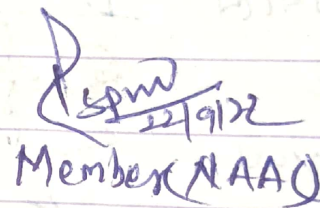 22/9/22
Member (NAAC)